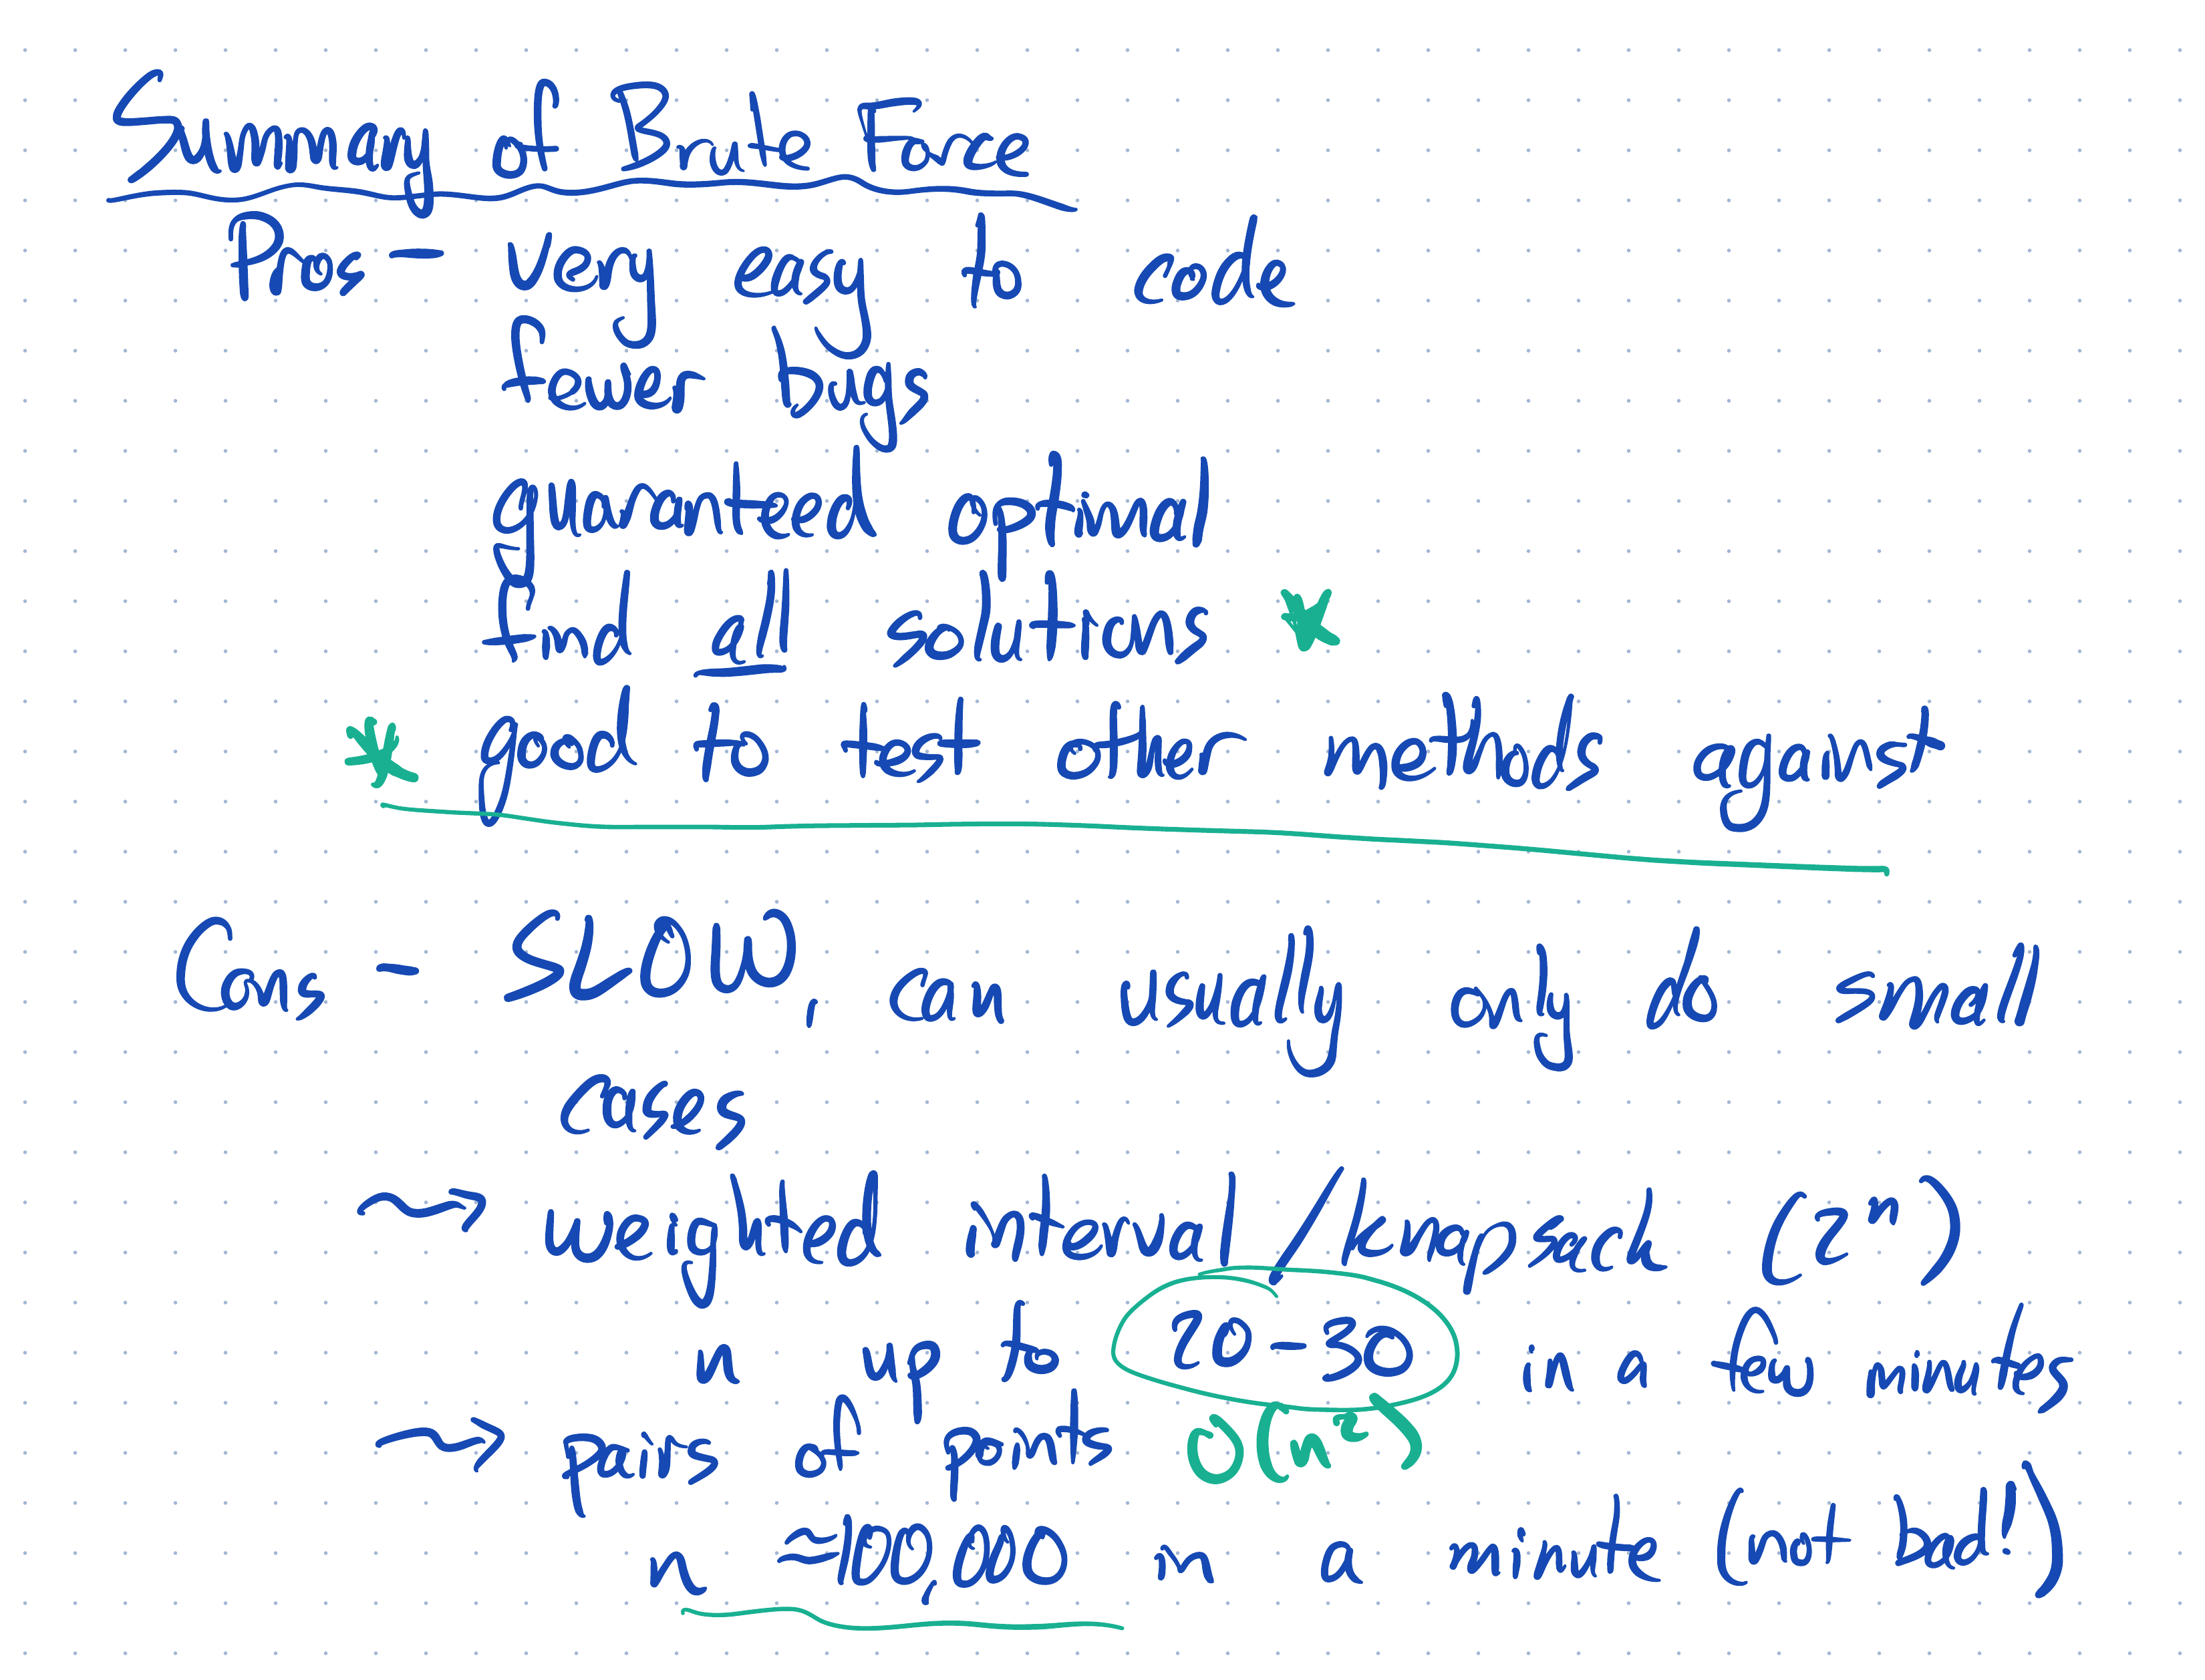 Summary of Brute Force
Pros - Very easy to code
fewer bugs
guaranteed optimal
find all solutions
good to test other methods against
Cons - SLOW, can usually only do small
cases
⇝ weighted interval/knapsack (2ⁿ)
n up to 20-30 in a few minutes
⇝ pairs of points O(n²)
n ≈100,000 in a minute (not bad!)